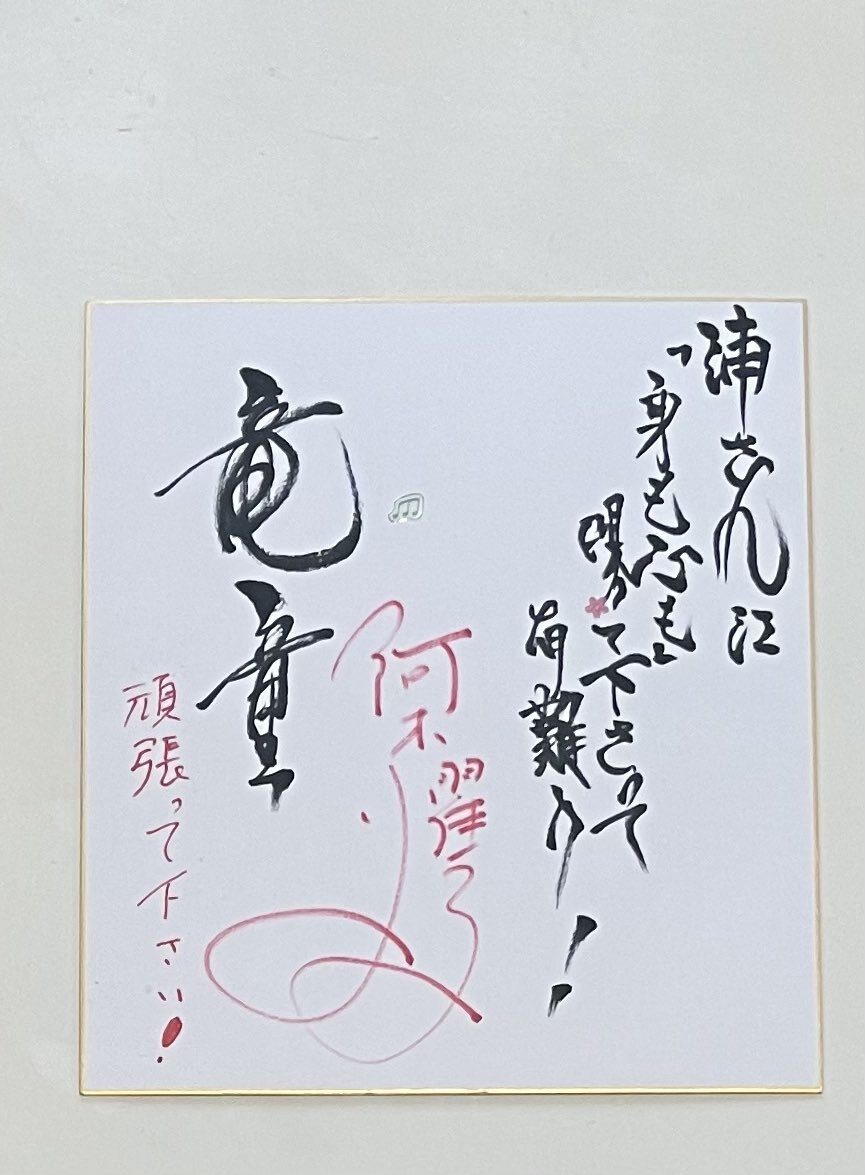 浦さん江
「身も心も」
て下さって
有難う!
竜童
阿木燿子
頑張って下さい!